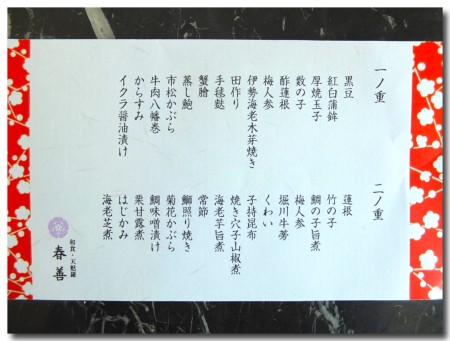 一ノ重
黒豆
紅白蒲鉾
厚焼玉子
数の子
酢蓮根
梅人参
伊勢海老木芽焼き
田作り
手毬麩
蟹膾
蒸し鮑
市松かぶら
牛肉八幡巻
からすみ
イクラ醤油漬け
二ノ重
蓮根
竹の子
鯛の子旨煮
梅人参
堀川牛蒡
くわい
子持昆布
焼き穴子山椒煮
海老芋旨煮
常節
鰤照り焼き
菊花かぶら
鯛味噌漬け
栗甘露煮
はじかみ
海老芝煮
和食・天麩羅
春善